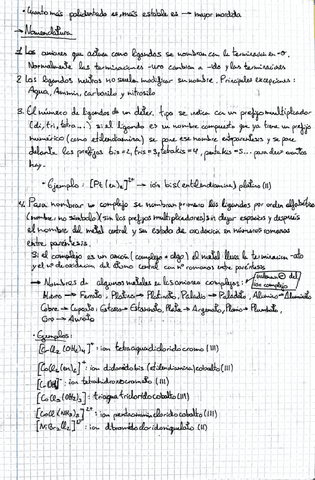 · Cuanto más polidentado es, más estable es → mayor mordida
→ Nomenclatura
1. Los aniones que actúan como ligandos se nombran con la terminación en -o.
Normalmente las terminaciones -uro cambian a -ido y las terminaciones
2. Los ligandos neutros no suele modificar su nombre. Principales excepciones:
Agua, Ammin, carbonilo y nitrosilo
3. El número de ligandos de un deter. tipo se indica con un prefijo multiplicador
(di, tri, tetra...) si el ligando es un nombre compuesto que ya tiene un prefijo
numérico (como etilendiamina) se pone ese nombre entre paréntesis y se pone
delante los prefijos bis=2, tris=3, tetrakis=4, pentakis=5... para decir cuántos
hay.
- Ejemplo: [Pt(en)₂]²⁺ → ión bis(etilendiamina) platino (II)
4. Para nombrar un complejo se nombran primero los ligandos por orden alfabético
(nombre, no símbolo) (sin los prefijos multiplicadores) sin dejar espacios y después
el nombre del metal central y su estado de oxidación en números romanos
entre paréntesis.
Si el complejo es un anión (complejo + algo) el metal lleva la terminación -ato
y el nº de oxidación del átomo central con nº romanos entre paréntesis
→ Nombres de algunos metales en los aniones complejos:
Hierro → Ferrato, Platino → Platinato, Paladio → Paladato, Aluminio → Aluminato
Cobre → Cuprato, Estaño → Estannato, Plata → Argentato, Plomo → Plumbato,
Oro → Aurato
· Ejemplos:
[CrCl₂(OH₂)₄]⁺: ion tetraaquadicloridocromo (III)
[CoCl₂(en)₂]⁺: ion diclorido bis(etilendiamina) cobalto (III)
: ion tetrahidroxocromato (III)
[CoCl₃(OH₂)₃]: triaquatricloridocobalto (III)
[CoCl(NH₃)₅]²⁺: ion pentaammincloridocobalto (III)
[NiBr₂Cl₂]²⁻: ion dibromidodicloridoniquelato (II)